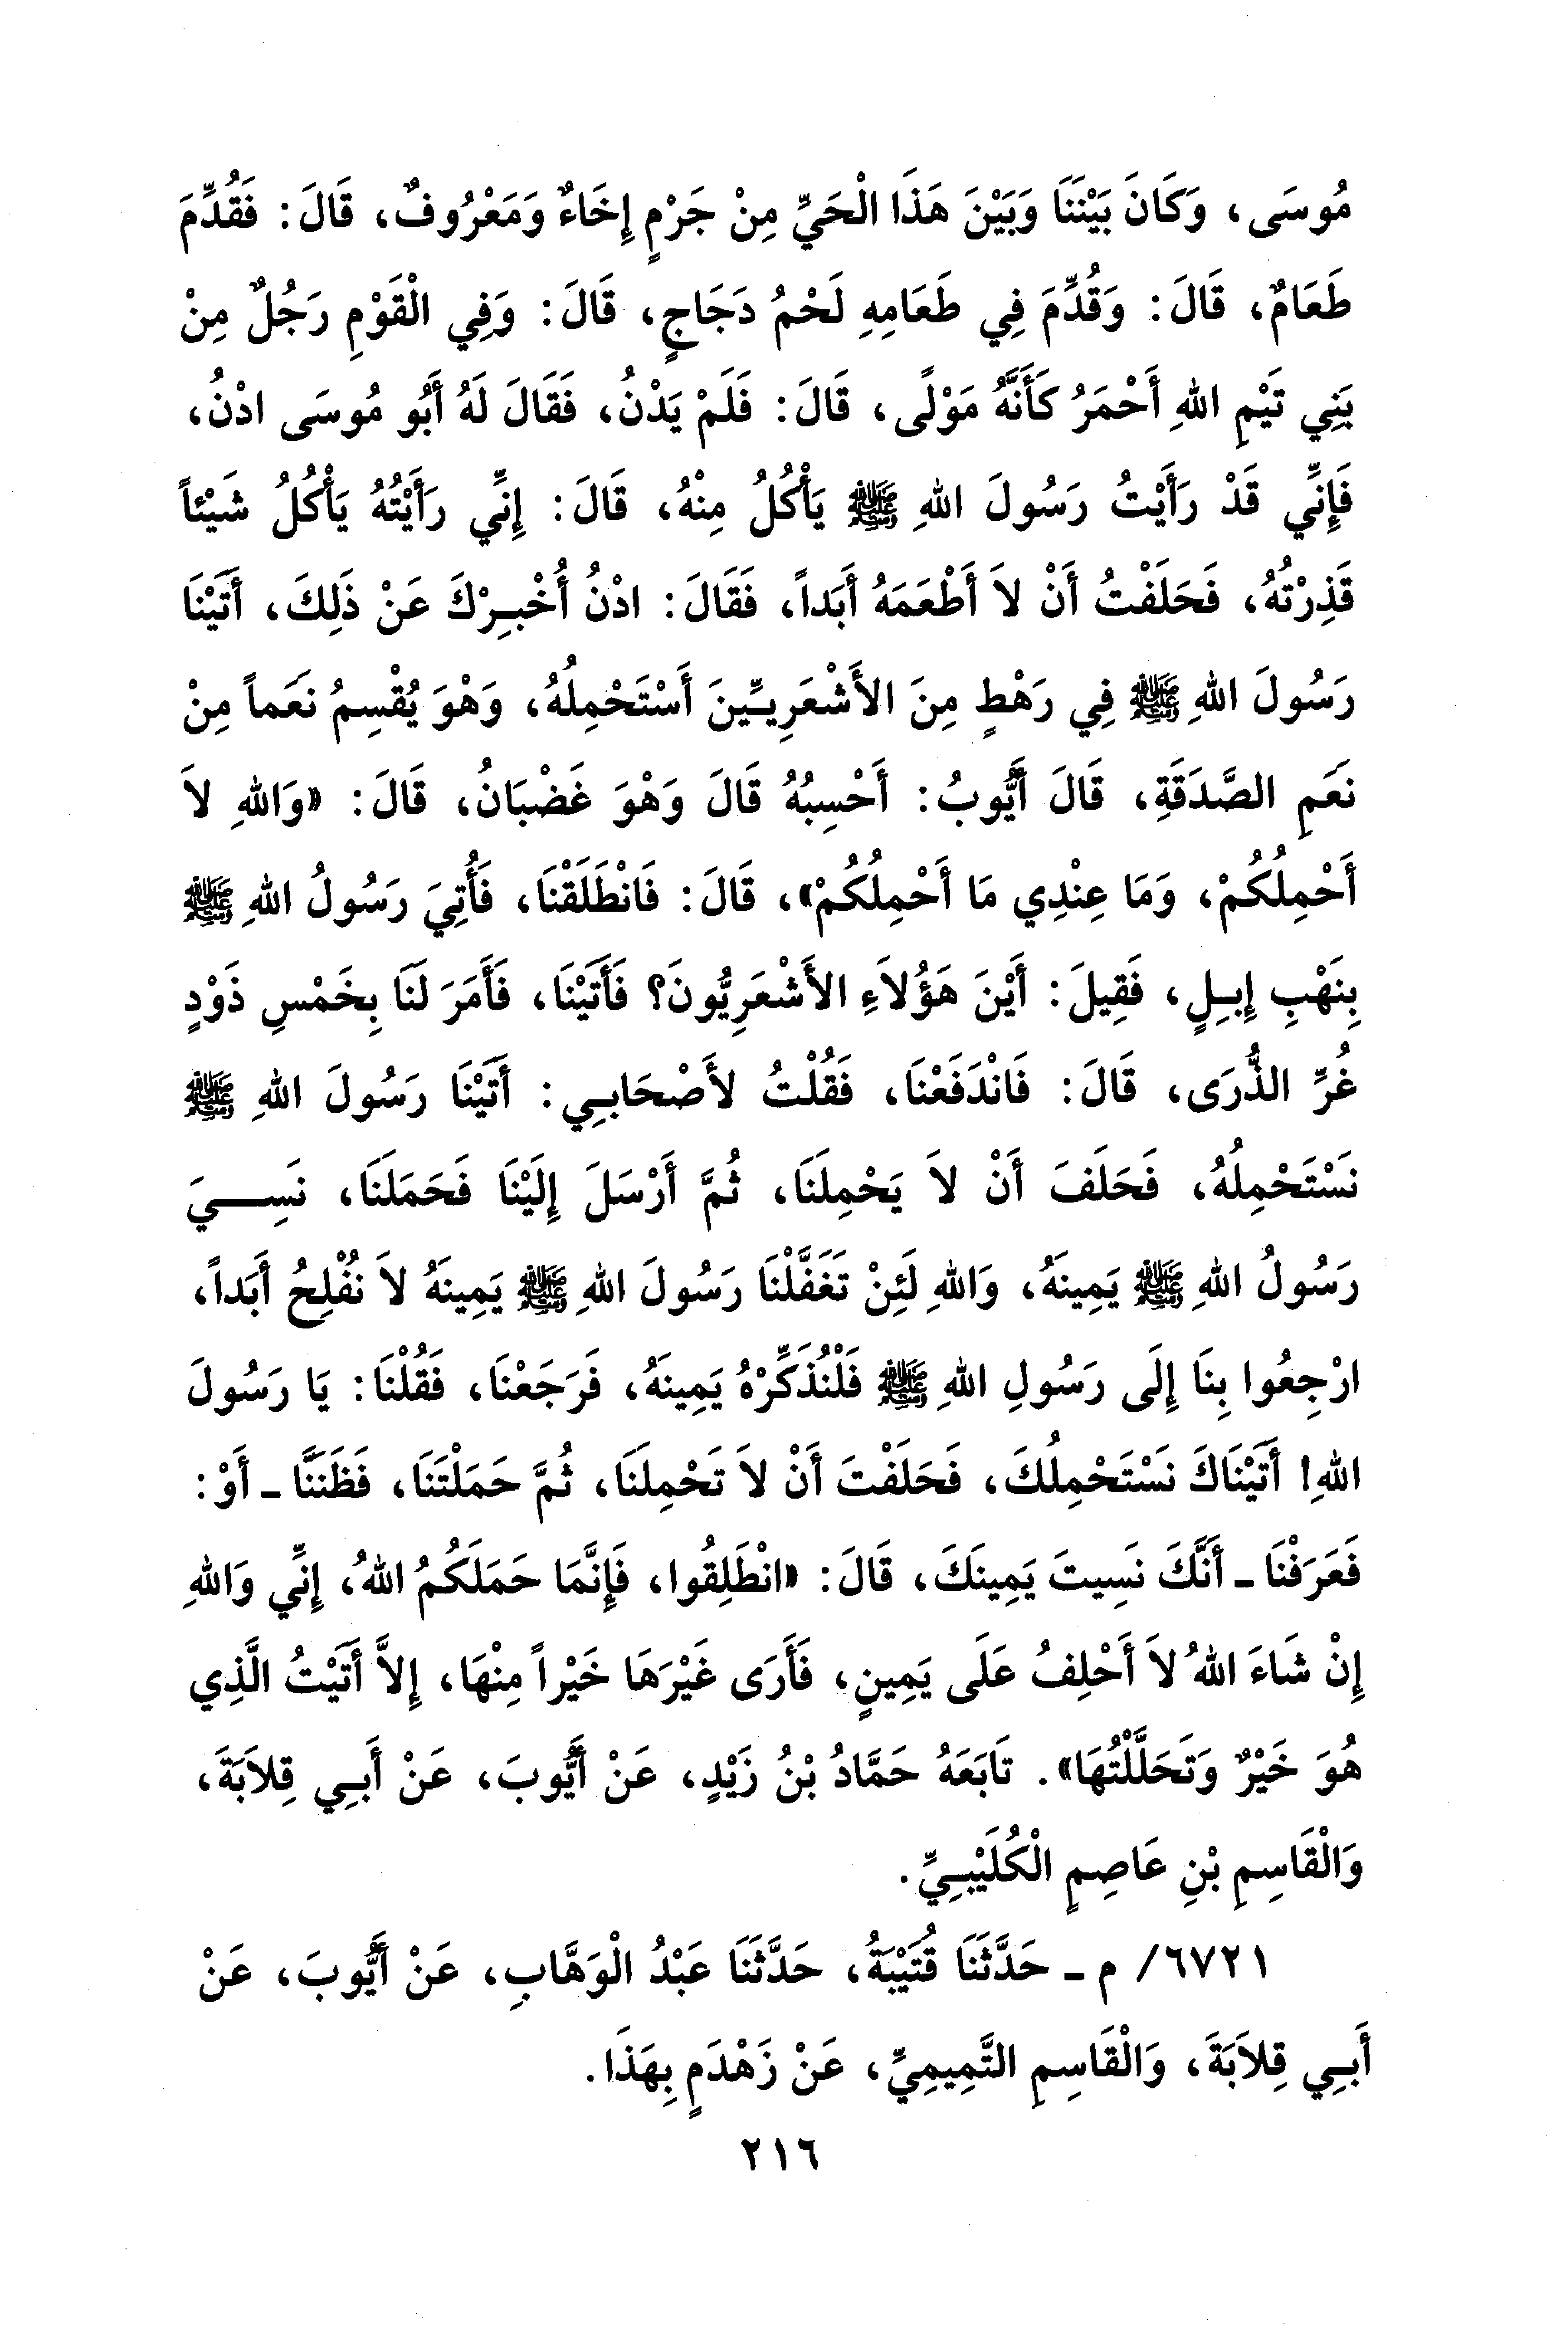 مُوسَى، وَكَانَ بَيْنَنَا وَبَيْنَ هَذَا الْحَيِّ مِنْ جَرْمٍ إِخَاءٌ وَمَعْرُوفٌ، قَالَ: فَقُدِّمَ
طَعَامٌ، قَالَ: وَقُدِّمَ فِي طَعَامِهِ لَحْمُ دَجَاجٍ، قَالَ: وَفِي الْقَوْمِ رَجُلٌ مِنْ
بَنِي تَيْمِ اللهِ أَحْمَرُ كَأَنَّهُ مَوْلًى، قَالَ: فَلَمْ يَدْنُ، فَقَالَ لَهُ أَبُو مُوسَى ادْنُ،
فَإِنِّي قَدْ رَأَيْتُ رَسُولَ اللهِ ﷺ يَأْكُلُ مِنْهُ، قَالَ: إِنِّي رَأَيْتُهُ يَأْكُلُ شَيْئاً
قَذِرْتُهُ، فَحَلَفْتُ أَنْ لاَ أَطْعَمَهُ أَبَداً، فَقَالَ: ادْنُ أُخْبِرْكَ عَنْ ذَلِكَ، أَتَيْنَا
رَسُولَ اللهِ ﷺ فِي رَهْطٍ مِنَ الأَشْعَرِيِّينَ أَسْتَحْمِلُهُ، وَهْوَ يُقْسِمُ نَعَماً مِنْ
نَعَمِ الصَّدَقَةِ، قَالَ أَيُّوبُ: أَحْسِبُهُ قَالَ وَهْوَ غَضْبَانُ، قَالَ: «وَاللهِ لاَ
أَحْمِلُكُمْ، وَمَا عِنْدِي مَا أَحْمِلُكُمْ»، قَالَ: فَانْطَلَقْنَا، فَأُتِيَ رَسُولُ اللهِ ﷺ
بِنَهْبِ إِبِلٍ، فَقِيلَ: أَيْنَ هَؤُلاَءِ الأَشْعَرِيُّونَ؟ فَأَتَيْنَا، فَأَمَرَ لَنَا بِخَمْسِ ذَوْدٍ
غُرِّ الذُّرَى، قَالَ: فَانْدَفَعْنَا، فَقُلْتُ لأَصْحَابِي: أَتَيْنَا رَسُولَ اللهِ ﷺ
نَسْتَحْمِلُهُ، فَحَلَفَ أَنْ لاَ يَحْمِلَنَا، ثُمَّ أَرْسَلَ إِلَيْنَا فَحَمَلَنَا، نَسِيَ
رَسُولُ اللهِ ﷺ يَمِينَهُ، وَاللهِ لَئِنْ تَغَفَّلْنَا رَسُولَ اللهِ ﷺ يَمِينَهُ لاَ نُفْلِحُ أَبَداً،
ارْجِعُوا بِنَا إِلَى رَسُولِ اللهِ ﷺ فَلْنُذَكِّرْهُ يَمِينَهُ، فَرَجَعْنَا، فَقُلْنَا: يَا رَسُولَ
اللهِ! أَتَيْنَاكَ نَسْتَحْمِلُكَ، فَحَلَفْتَ أَنْ لاَ تَحْمِلَنَا، ثُمَّ حَمَلْتَنَا، فَظَنَنَّا - أَوْ:
فَعَرَفْنَا - أَنَّكَ نَسِيتَ يَمِينَكَ، قَالَ: «انْطَلِقُوا، فَإِنَّمَا حَمَلَكُمُ اللهُ، إِنِّي وَاللهِ
إِنْ شَاءَ اللهُ لاَ أَحْلِفُ عَلَى يَمِينٍ، فَأَرَى غَيْرَهَا خَيْراً مِنْهَا، إِلاَّ أَتَيْتُ الَّذِي
هُوَ خَيْرٌ وَتَحَلَّلْتُهَا». تَابَعَهُ حَمَّادُ بْنُ زَيْدٍ، عَنْ أَيُّوبَ، عَنْ أَبِي قِلاَبَةَ،
وَالْقَاسِمِ بْنِ عَاصِمٍ الْكُلَيْبِيِّ.
٦٧٢١/ م - حَدَّثَنَا قُتَيْبَةُ، حَدَّثَنَا عَبْدُ الْوَهَّابِ، عَنْ أَيُّوبَ، عَنْ
أَبِي قِلاَبَةَ، وَالْقَاسِمِ التَّمِيمِيِّ، عَنْ زَهْدَمٍ بِهَذَا.
٢١٦